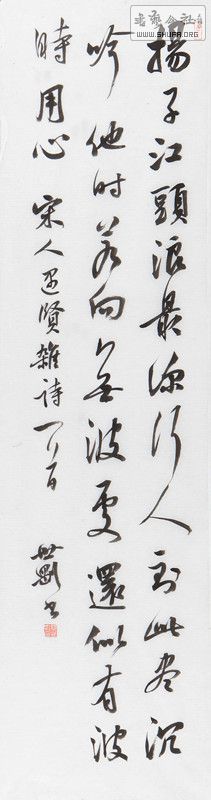 書藝公社
WWW.SHUFA.ORG
揚子江頭浪最深行人到此盡沉
吟他時若向無波處還似有波
時用心 宋人遇賢雜詩一首 書